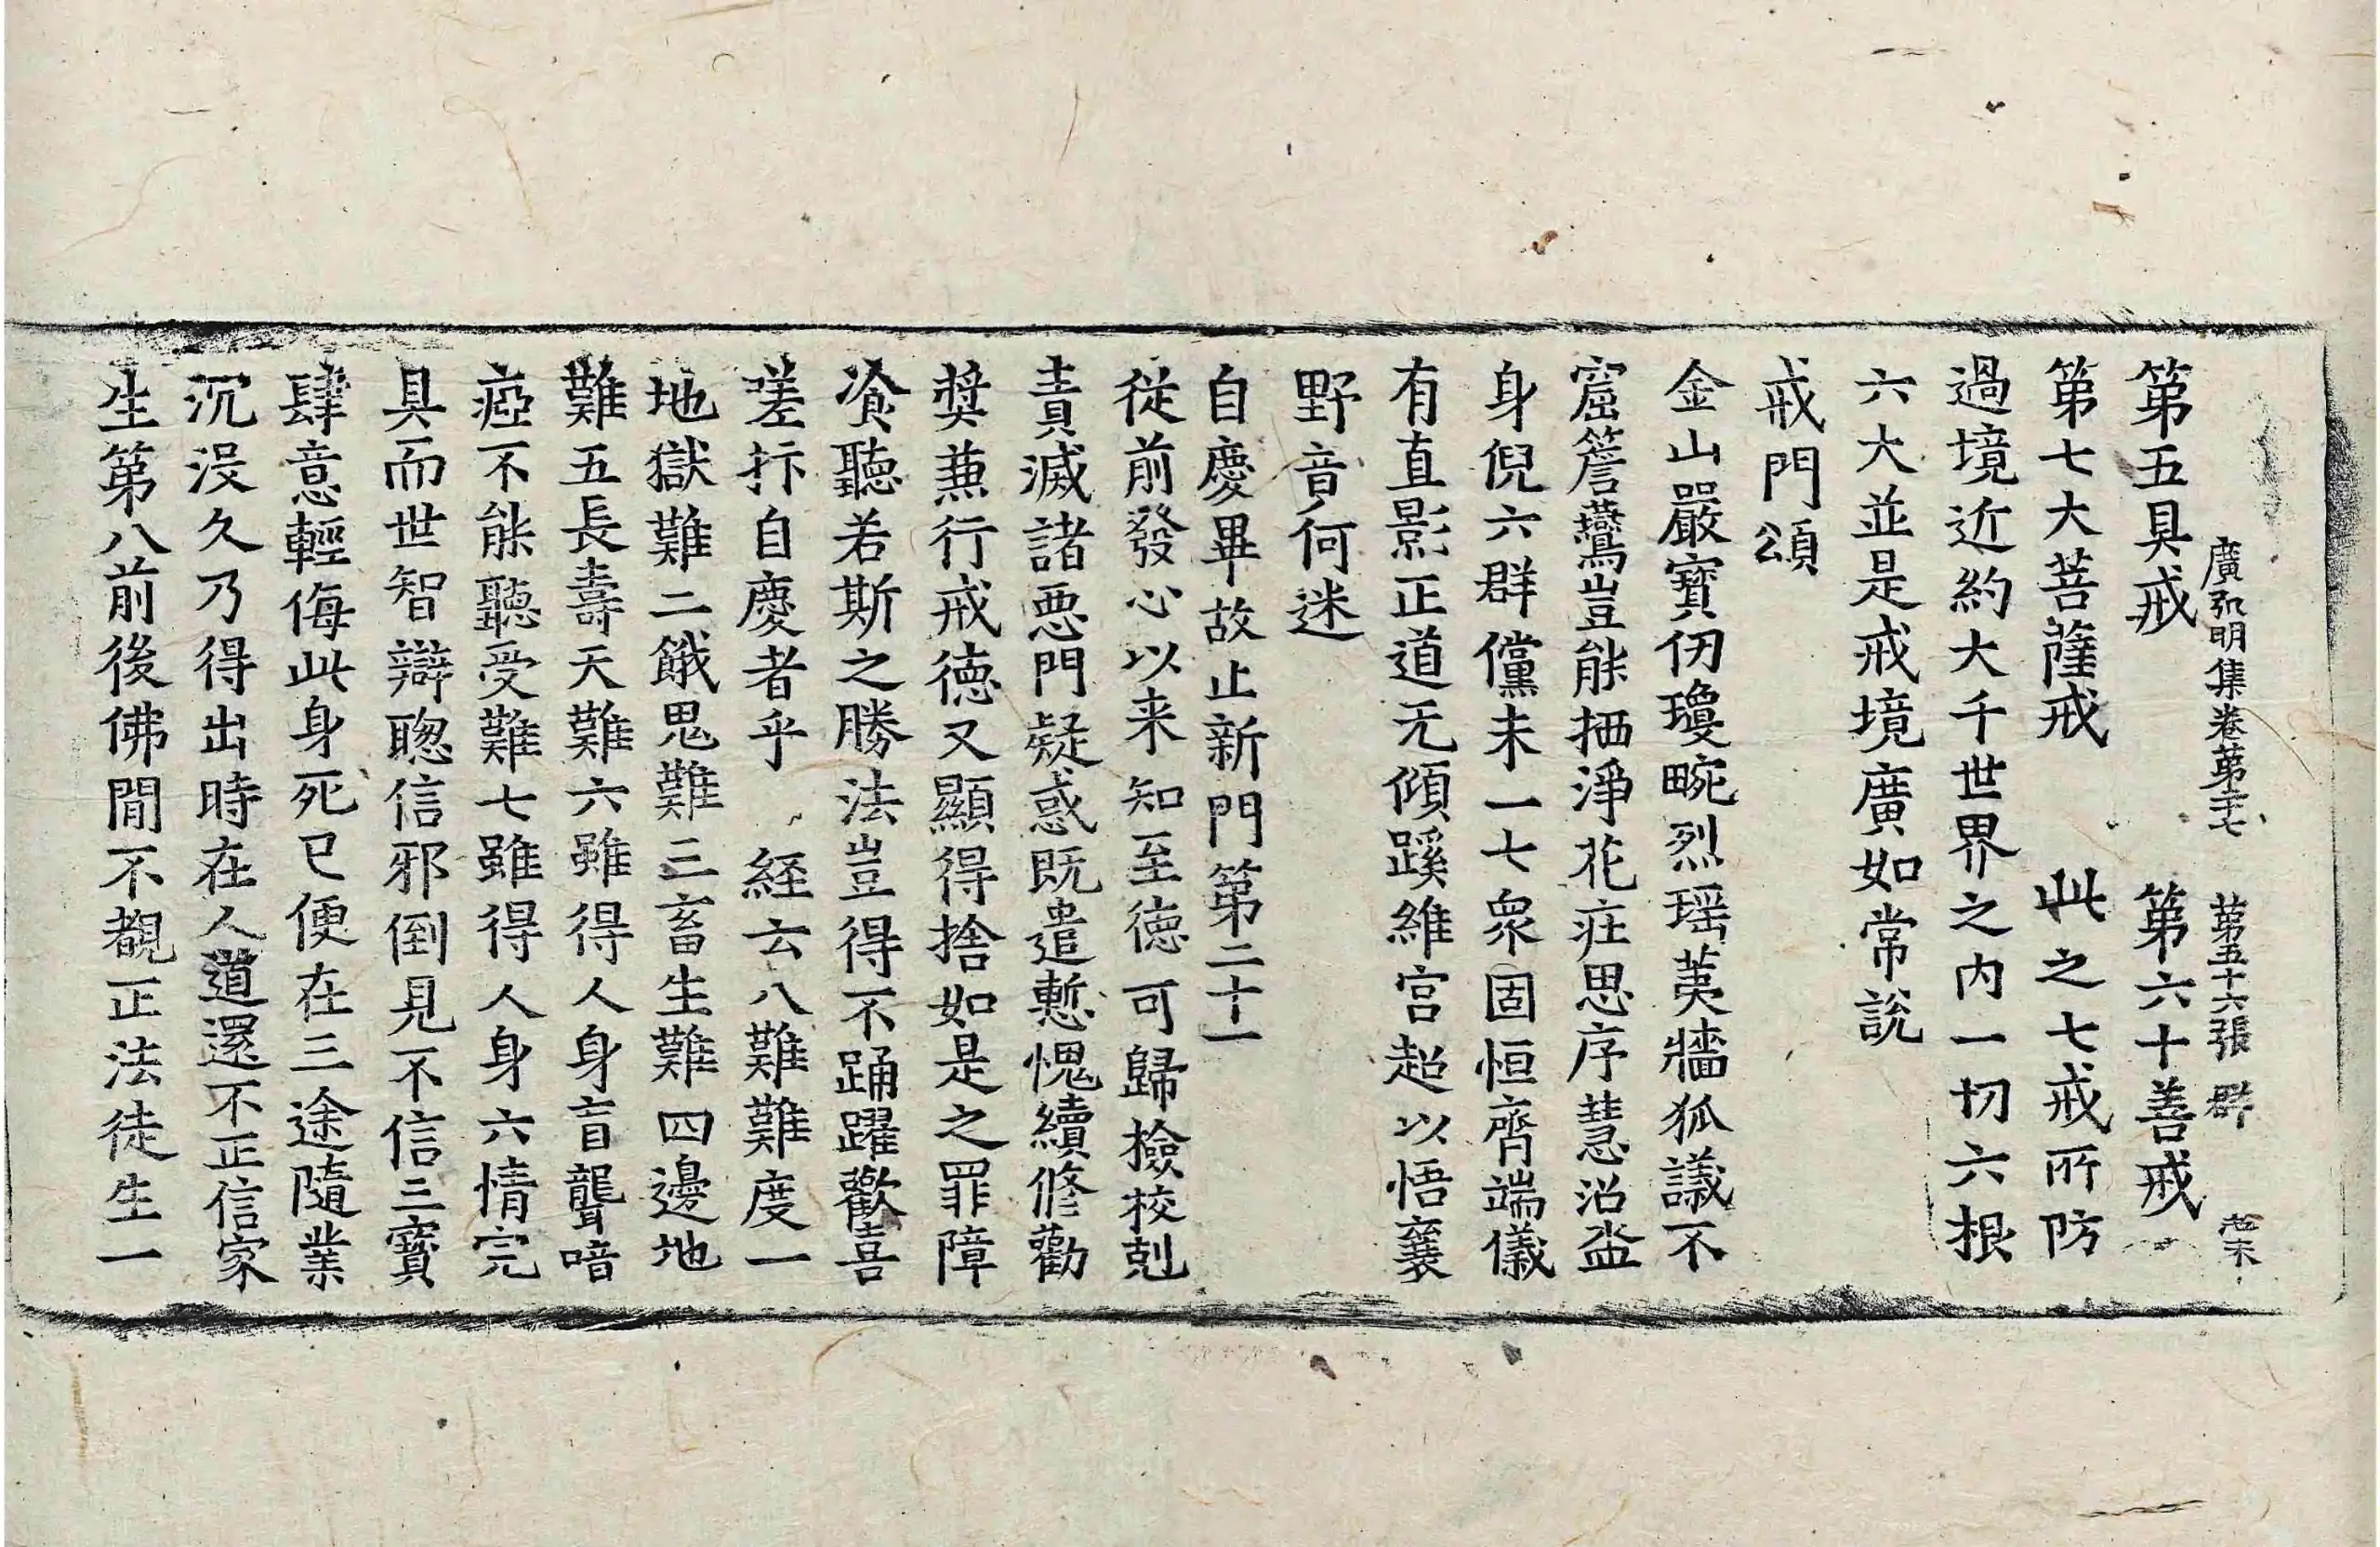 廣弘明集卷第二十七 第五十六張 群
第五具戒 第六十善戒
第七大菩薩戒 此之七戒所防
過境近約大千世界之内一切六根
六大並是戒境廣如常說
戒門頌
金山嚴寶仞瓊畹烈瑶荑牆狐議不
窟簷鷰豈能栖淨花疘思序慧沼盃
身倪六群儻未一七衆固恒齊端儀
有直影正道无傾蹊維宫超以悟襄
野音何迷
自慶畢故止新門第二十一
從前發心以来知至德可歸撿校剋
責滅諸惡門疑惑既遣慙愧續修勸
奬兼行戒德又顯得捨如是之罪障
飡聽若斯之勝法豈得不踊躍歡喜
嗟抃自慶者乎 経云八難難度一
地獄難二餓鬼難三畜生難四邊地
難五長壽天難六雖得人身盲聾喑
瘂不能聽受難七雖得人身六情完
具而世智辯聡信邪倒見不信三寶
肆意輕侮此身死已便在三途隨業
沉没久乃得出時在人道還不正信家
生第八前後佛閒不覩正法徒生一